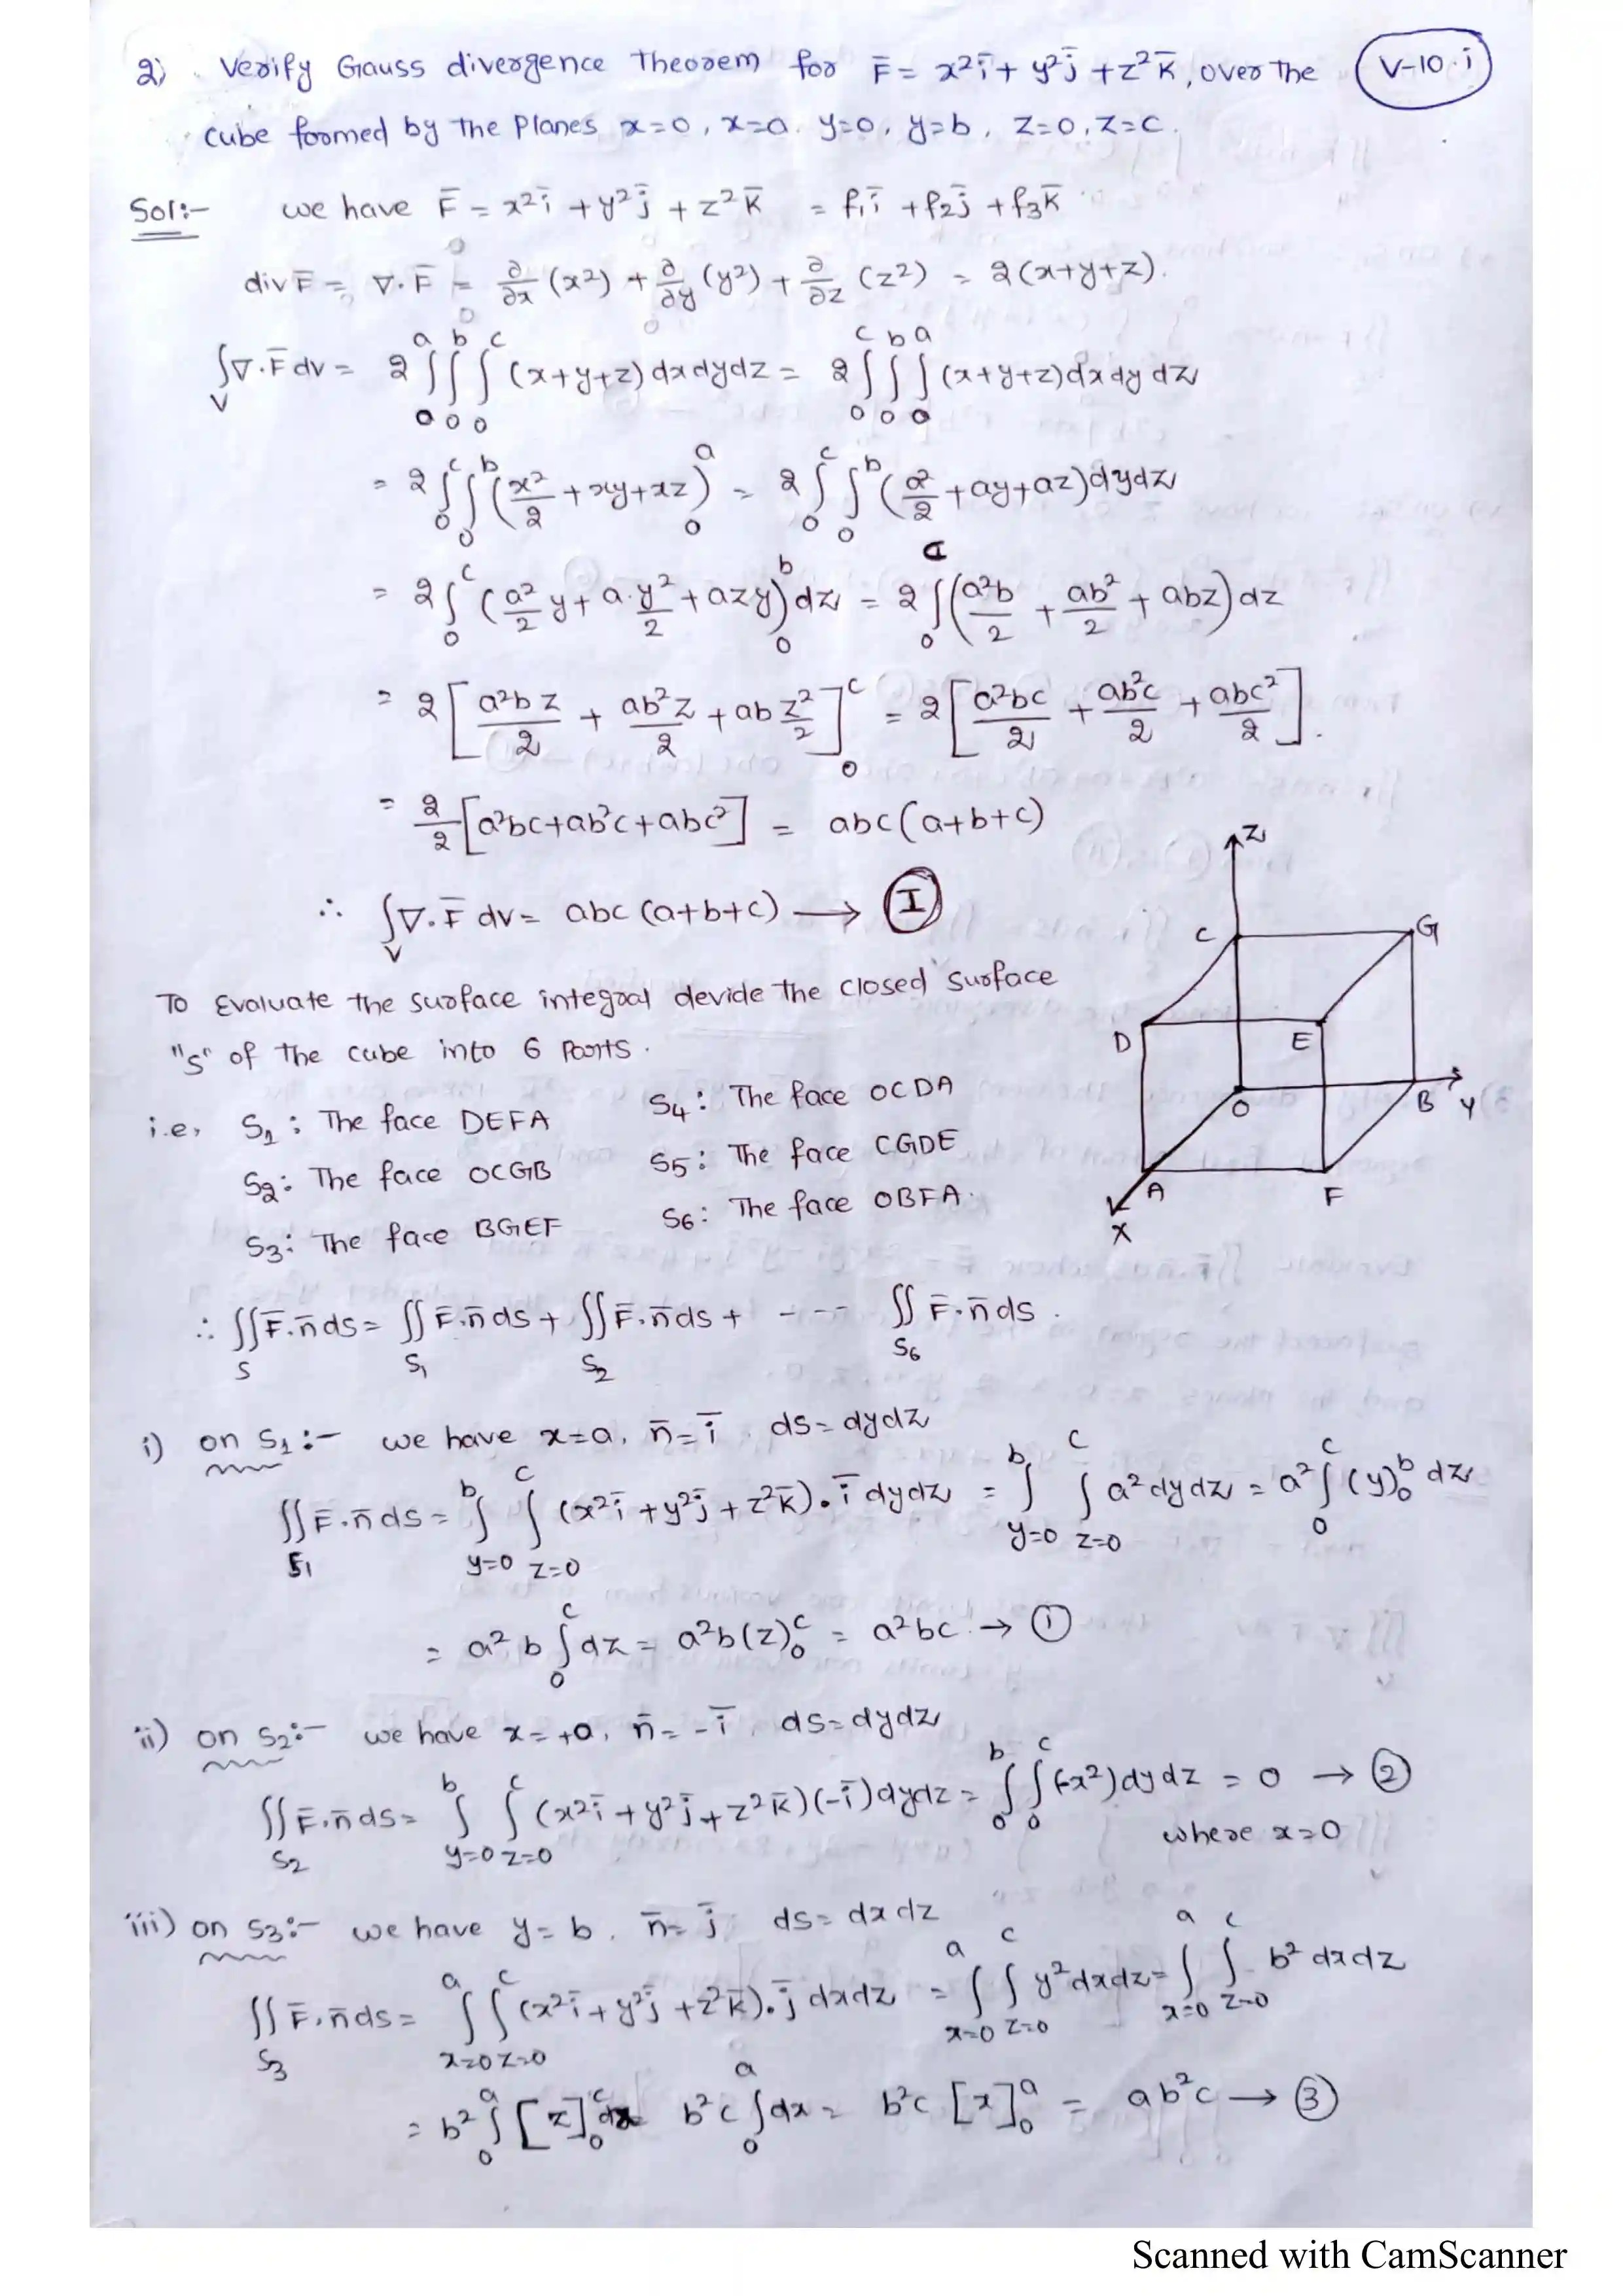 2) Verify Gauss divergence Theorem for F̄ = x²ī + y²j̄ + z²k̄, over the V-10.i
cube formed by the Planes x=0, x=a. y=0, y=b, z=0, z=c.
Sol:- we have F̄ = x²ī + y²j̄ + z²k̄ = f₁ī + f₂j̄ + f₃k̄
div F̄ = ∇.F̄ = ∂/∂x (x²) + ∂/∂y (y²) + ∂/∂z (z²) = 2(x+y+z).
∫_V ∇.F̄ dv = 2 ∫₀^a ∫₀^b ∫₀^c (x+y+z) dx dy dz = 2 ∫₀^c ∫₀^b ∫₀^a (x+y+z) dx dy dz
= 2 ∫₀^c ∫₀^b (x²/2 + xy + xz)₀^a = 2 ∫₀^c ∫₀^b (a²/2 + ay + az) dy dz
= 2 ∫₀^c (a²/2 y + a.y²/2 + azy)₀^b dz = 2 ∫₀^a (a²b/2 + ab²/2 + abz) dz
= 2 [a²bz/2 + ab²z/2 + ab z²/2]₀^c = 2 [a²bc/2 + ab²c/2 + abc²/2].
= 2/2 [a²bc + ab²c + abc²] = abc(a+b+c)
∴ ∫_V ∇.F̄ dv = abc (a+b+c) → I
Z
C
G
D
E
O
B
Y
A
F
X
To Evaluate the surface integral devide the closed surface
"s" of the cube into 6 Parts.
i.e, S₁ : The face DEFA S₄ : The face OCDA
S₂ : The face OCGB S₅ : The face CGDE
S₃ : The face BGEF S₆ : The face OBFA.
∴ ∬_S F̄.n̄ ds = ∬_S₁ F̄.n̄ ds + ∬_S₂ F̄.n̄ ds + - - - ∬_S₆ F̄.n̄ ds.
i) on S₁ :- we have x=a, n̄ = ī, ds = dydz
∬_S₁ F̄.n̄ ds = ∫_{y=0}^b ∫_{z=0}^c (x²ī + y²j̄ + z²k̄). ī dydz = ∫_{y=0}^b ∫_{z=0}^c a² dydz = a² ∫₀^c (y)₀^b dz
= a² b ∫₀^c dz = a²b (z)₀^c = a²bc → 1
ii) on S₂ :- we have x = +0, n̄ = -ī, ds = dydz
∬_S₂ F̄.n̄ ds = ∫_{y=0}^b ∫_{z=0}^c (x²ī + y²j̄ + z²k̄)(-ī) dydz = ∫₀^b ∫₀^c (-x²) dydz = 0 → 2
where x=0
iii) on S₃ :- we have y = b, n̄ = j̄ ds = dx dz
∬_S₃ F̄.n̄ ds = ∫_{x=0}^a ∫_{z=0}^c (x²ī + y²j̄ + z²k̄). j̄ dxdz = ∫_{x=0}^a ∫_{z=0}^c y² dxdz = ∫_{x=0}^a ∫_{z=0}^c b² dxdz
= b² ∫₀^a [z]₀^c dx b²c ∫₀^a dx = b²c [x]₀^a = ab²c → 3
Scanned with CamScanner